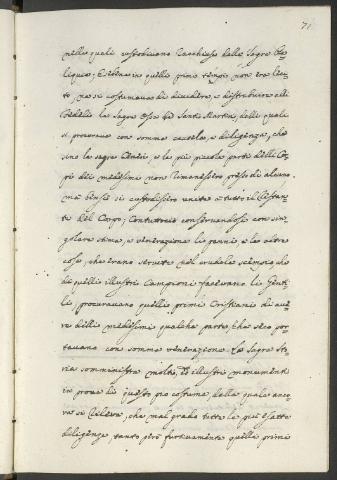 71
nelle quali custodivano racchiuse dalle Sagre Re-
liquie; E sebene in quelli primi tempi non era leci-
to, ne si costumava di dividere, e distribuire alli
Fedeli le Sagre Ossa de Santi Martiri, delli quali
si procurava con somma cautela, e diligenza, che
sino le sagre Ceneri, e le più piccole parti delli Cor-
pi dei medesimi non rimanessero presso di alcuno
ma bensì si custodissero unite a tutto il restan-
te del Corpo; Contuttociò conservandosi con sin-
golare stima, e venerazione li panni, e le altre
cose, che erano servite nel crudele scempio, che
di quelli illustri Campioni facevano li Genti-
li, procuravano quelli primi Cristiani di ave-
re delli medesimi qualche parte, che seco por-
tavano con somma venerazione. La Sagra Sto-
ria somministra molti, ed illustri monumenti
in prova di questo pio costume, dalla quale anco-
ra si rileva, che mal grado tutte le più esatte
diligenze, tanto però furtivamente quelli primi